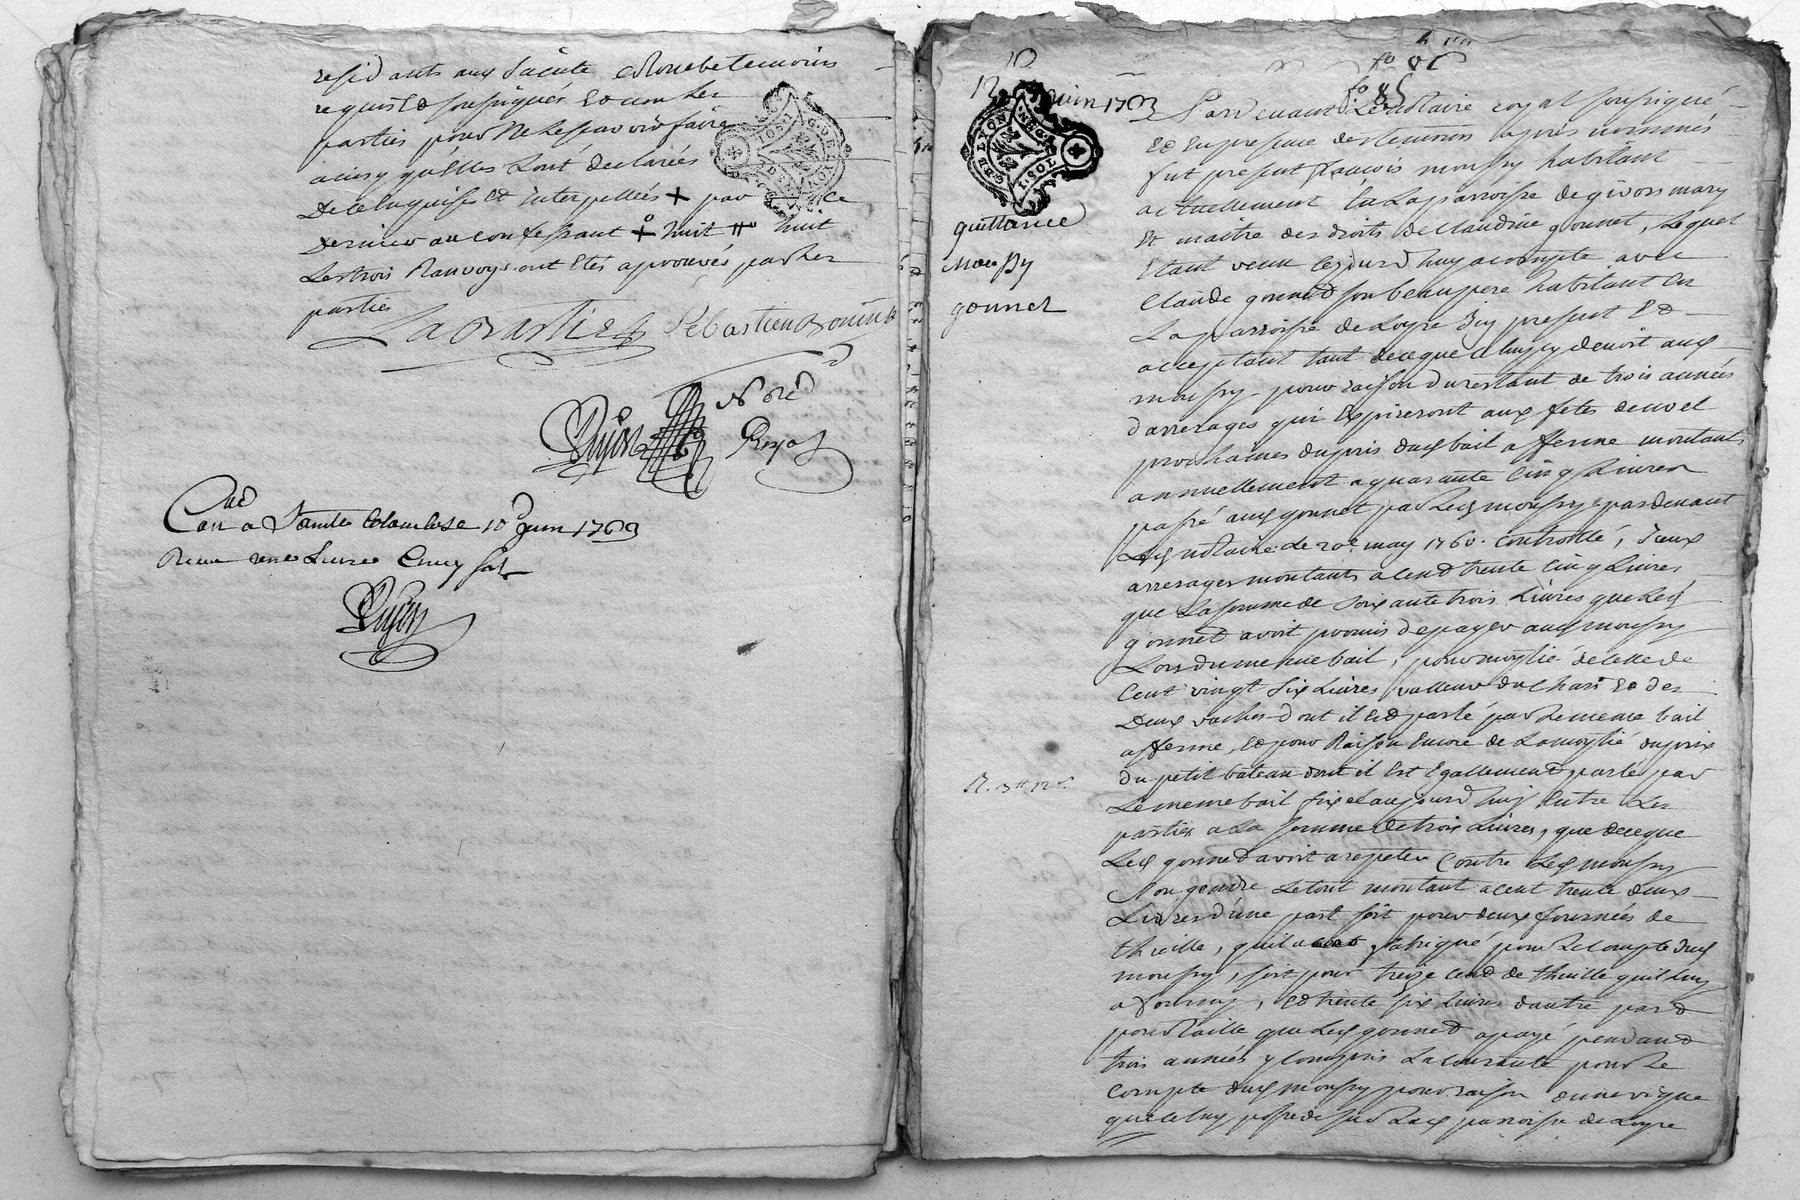 residants aux Sainte Colombe temoins
requis Et soussignés Et non les
parties pour Ne Le scavoir faire
ainsy qu'elles Lont declarées
De ce Enquises Et interpellées + par ce
Dernier au confessant + huit huit
Les trois Ranvoys ont Etés aprouvés par les
parties
Labrastie Sébastien Bonin
Dujon Nore
Royal
Con a Sainte Colombe 10 Juin 1763
Receu une Livre Cinq sols
Dujon
G. DE LYON
DEN
1.SOL
fo 85
12 Juin 1763
GEN. DE LYON
1.SOL
quittance
moussy
gonnet
R. 3tt 12s
Pardevant Le notaire royal soussigné
Et En presence des temoins apres nommés
fut present francois moussy habitant
actuellement En La parroisse de givors mary
Et maitre des droits de claudine gonnet, Lequel
Etant venu cejourd'huy a compte avec
Claude gonnet son beaupere habitant En
La parroisse de Loyre Icy present Et
acceptant tant de ce que Celuycy devoit aud.
moussy pour raison du restant de trois années
d'arrerages qui Expireront aux fetes de noel
prochaines du prix du bail a fferme montant
annuellement a quarante Cinq Livres
passé aud gonnet par Led moussy pardevant
Led notaire de 20e may 1760. Controllé, Iceux
arrerages montants a cent trente Cinq Livres
que La somme de soixante trois Livres que Led
gonnet avoit promis de payer aud moussy
Lors du meme bail, pour moytié de celle de
Cent vingt six Livres valleur du Char Et des
Deux vaches dont il Est parlé par Le meme bail
afferme, Et pour Raison Encore de La moytié du prix
du petit bateau dont il Est Egallement parlé par
Le meme bail fixé aujourd'huy Entre Les
parties a La somme de trois Livres, que de ce que
Led gonnet avoit a repeter Contre Led moussy
son gendre Le tout montant a cent trente deux
Livres d'une part soit pour deux fournées de
thuille, qu'il a fabriqué pour Le compte dud
moussy, soit pour treize cent de thuille qu'il luy
a fourny, Et trente six Livres d'autre part
pour taille que Led gonnet a payé pendant
trois années y Compris La courante pour Le
Compte dud moussy pour raison d'une vigne
que celuy possede sur Lad parroisse de Loyre